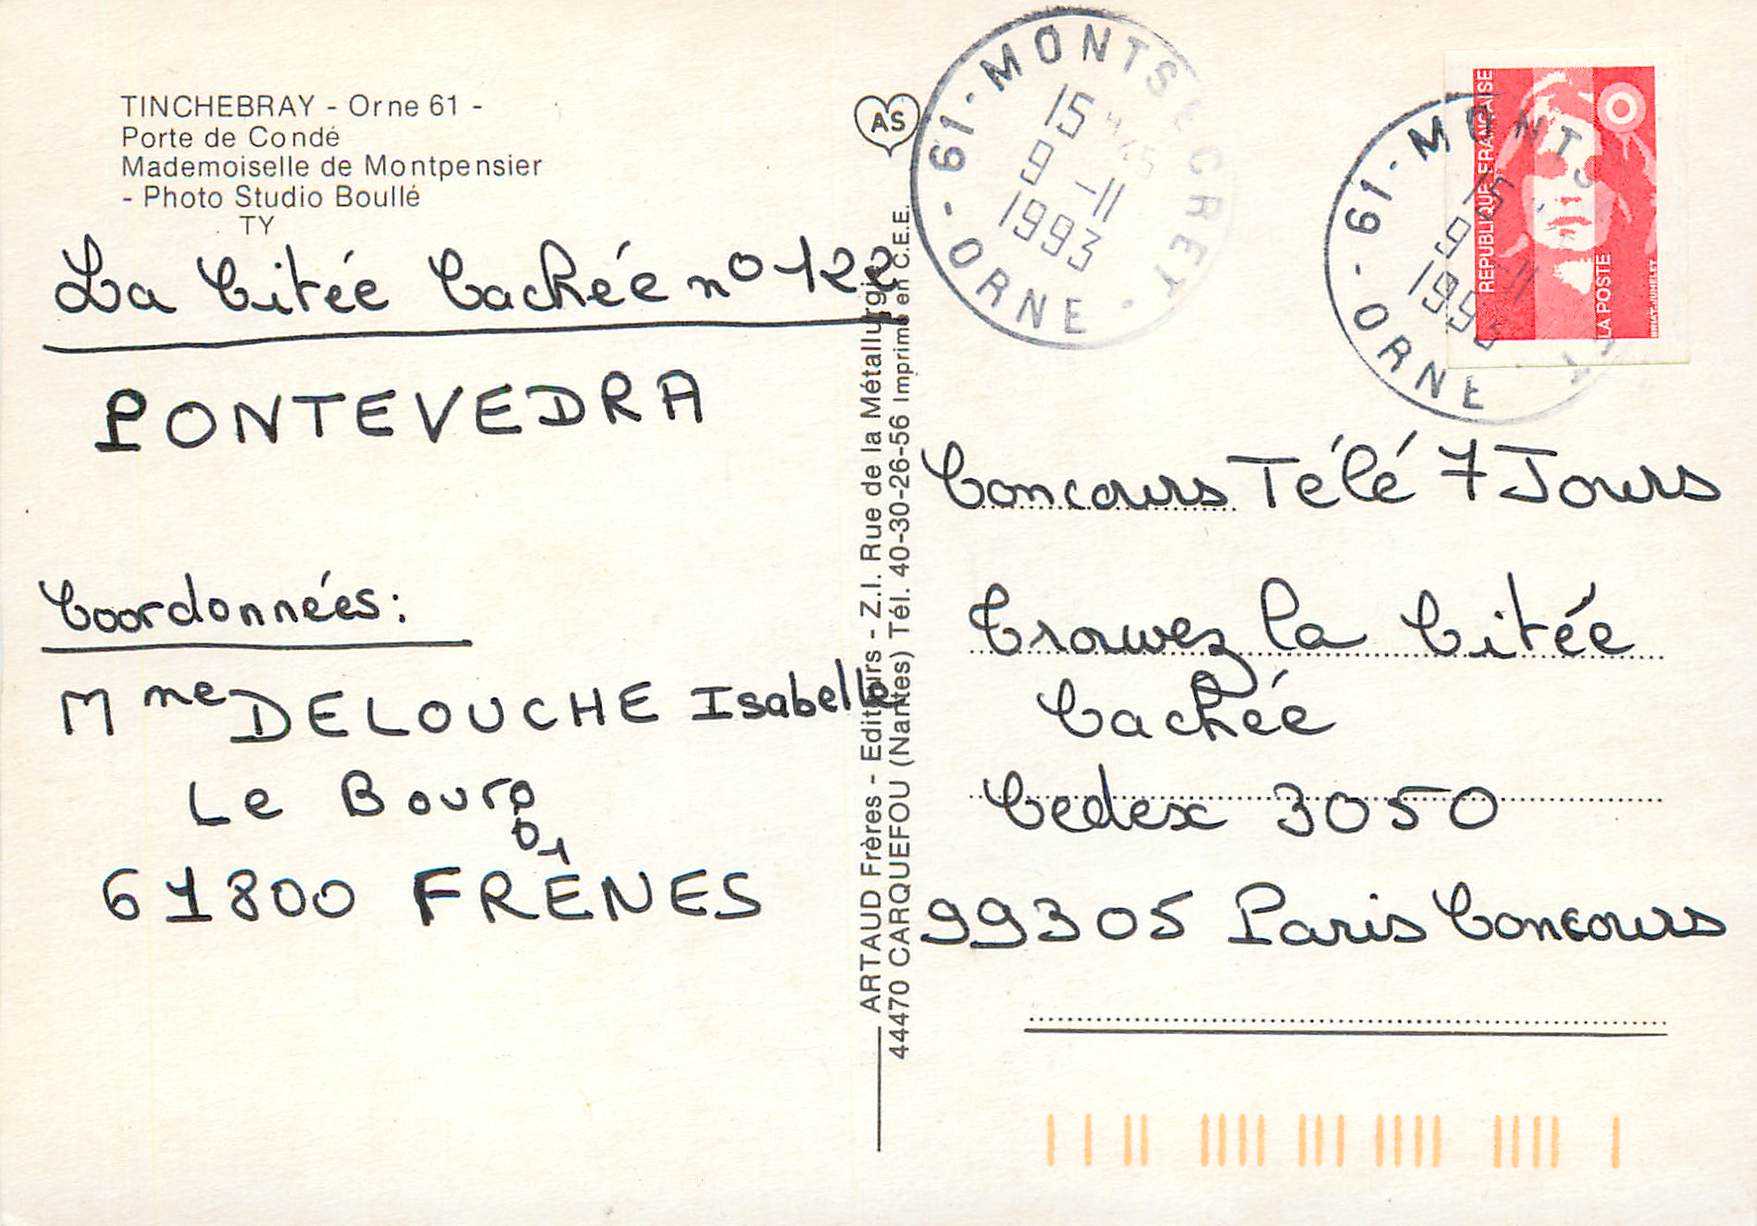 TINCHEBRAY - Orne 61 -
Porte de Condé
Mademoiselle de Montpensier
- Photo Studio Boullé
TY
La Citée Cachée n° 122
PONTEVEDRA
Coordonnées:
Mme DELOUCHE Isabelle
Le Bourg
61800 FRÊNES
AS
ARTAUD Frères - Editeurs - Z.I. Rue de la Métallurgie
44470 CARQUEFOU (Nantes) Tél. 40-30-26-56 Imprimé en C.E.E.
61 - MONTSECRET - ORNE
15 H 45
9 - 11
1993
61 - MONTS
ORNE
15
9 - 11
1993
REPUBLIQUE FRANÇAISE
LA POSTE
BRIAT. JUMELET
Concours Télé 7 Jours
Trouvez la Citée
Cachée
Cedex 3050
99305 Paris Concours